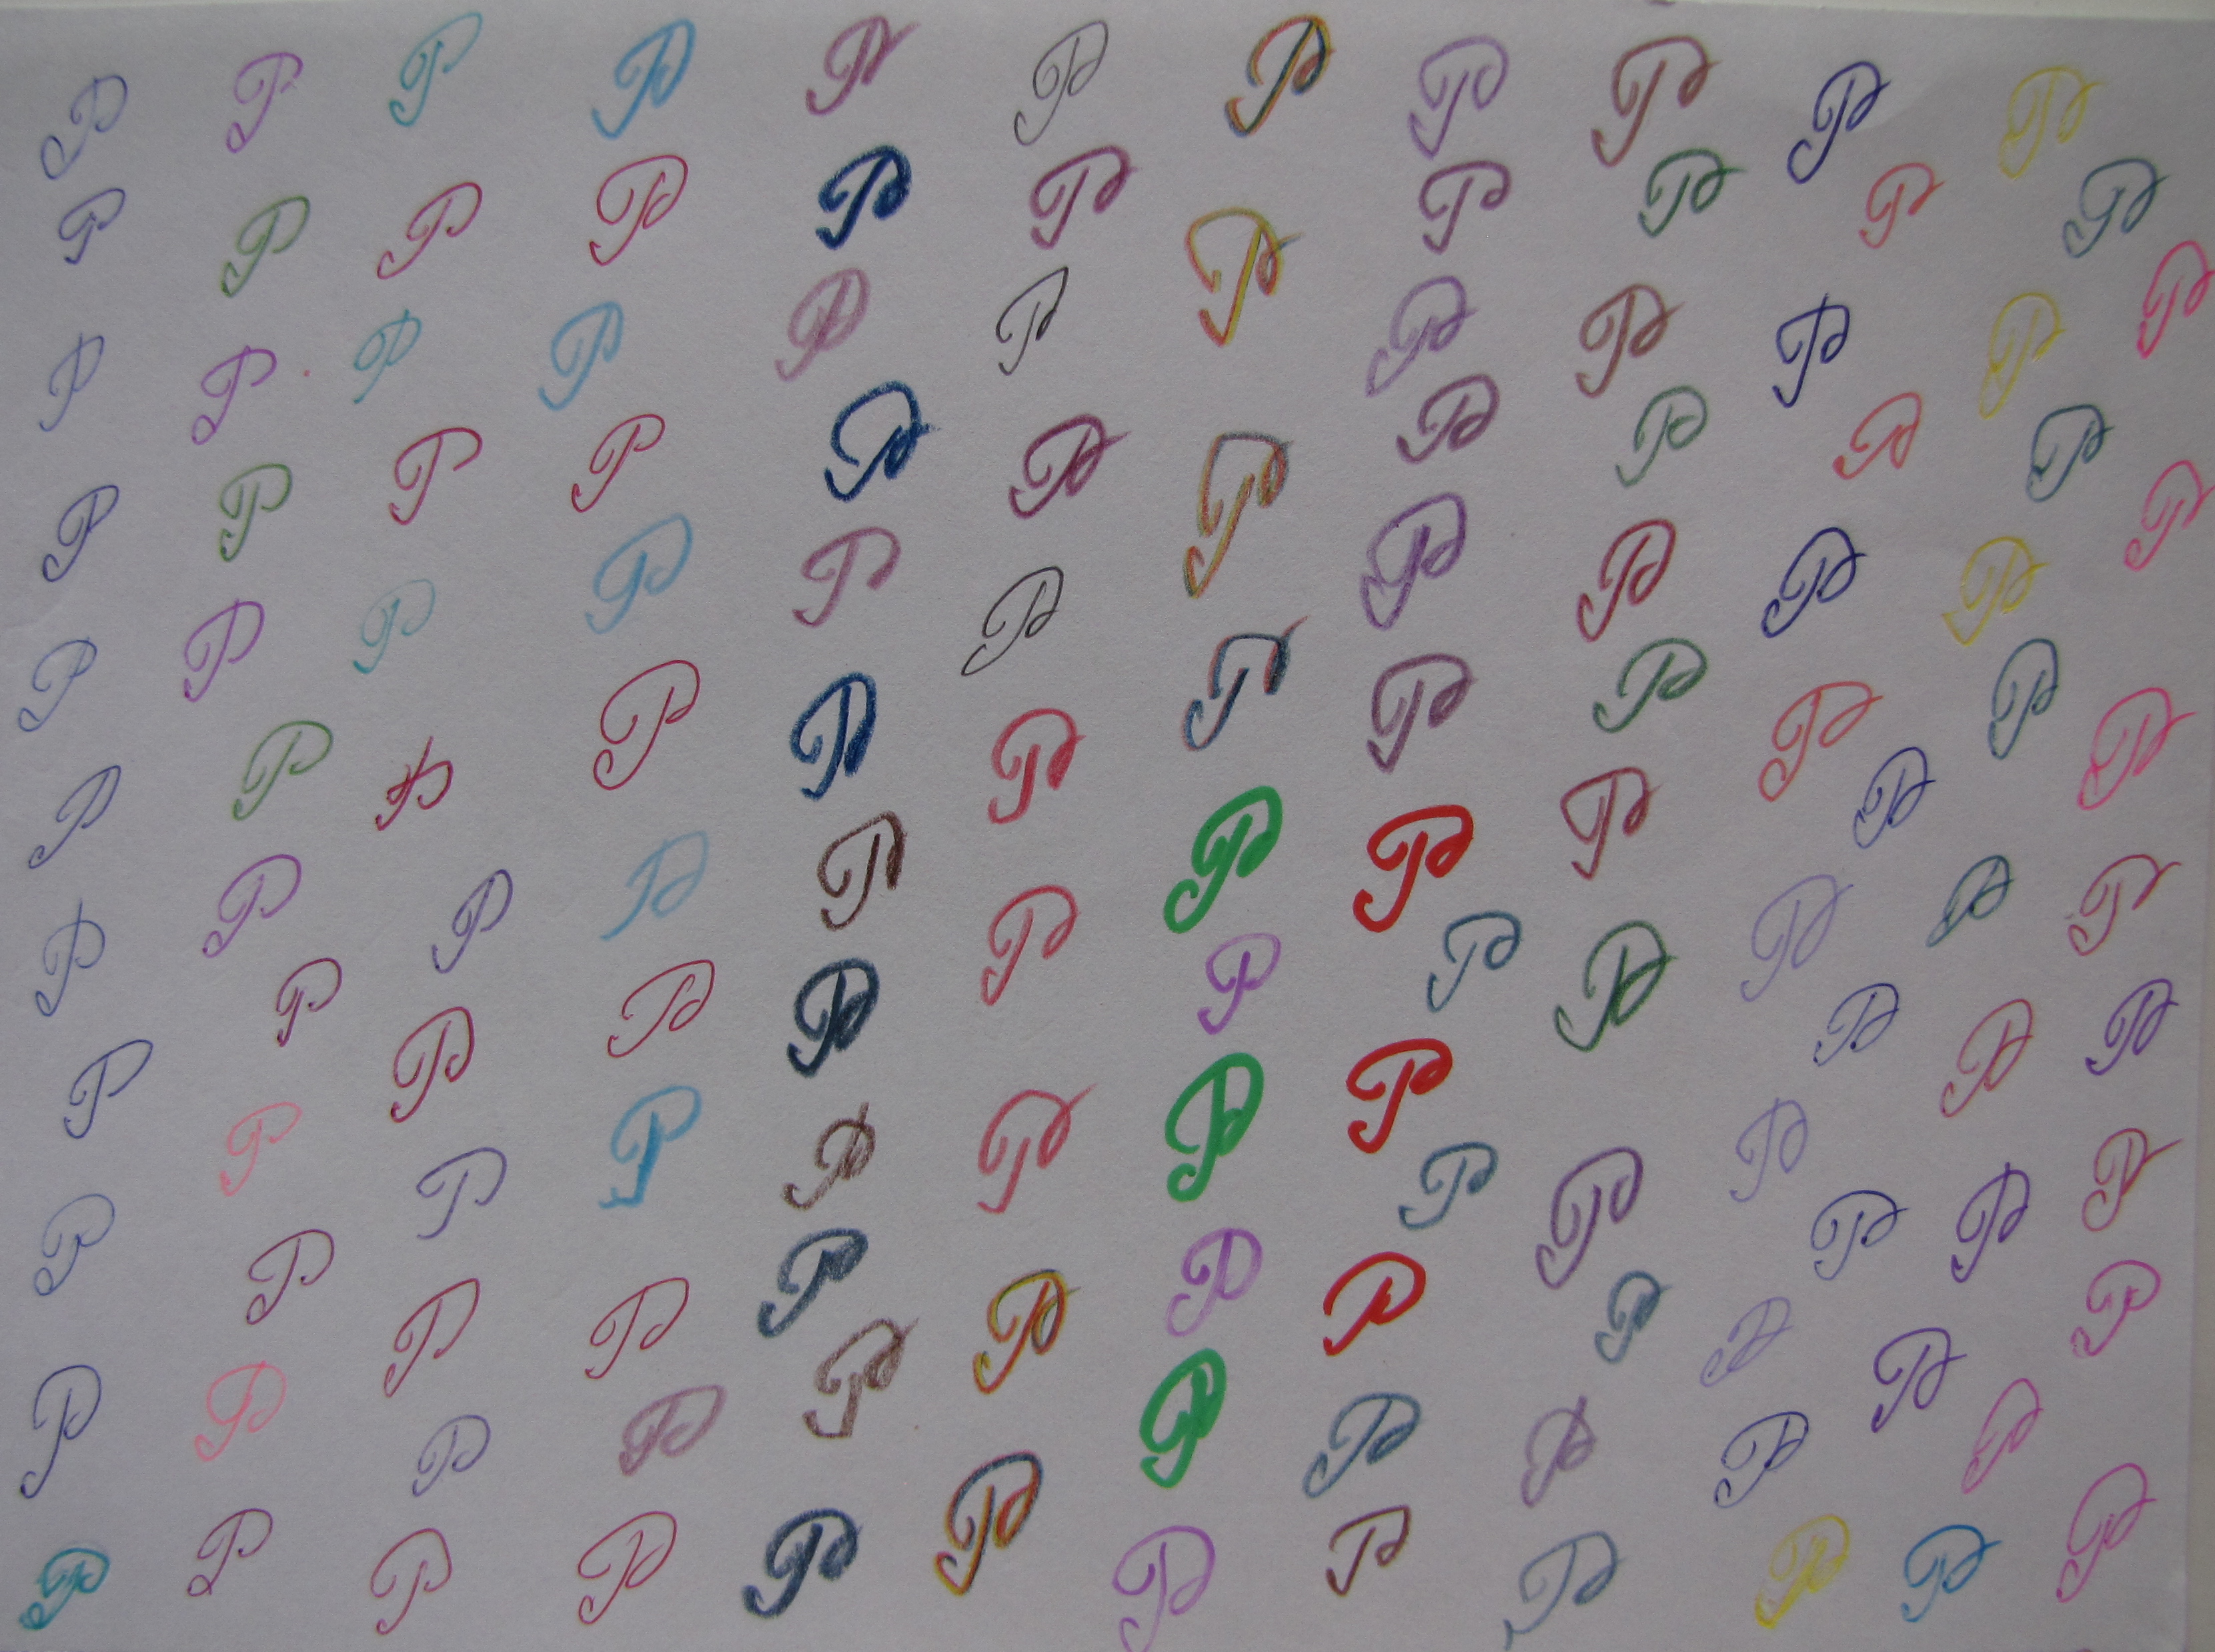 P P P P P P P P P P P
P P P P P P P P P P P P
P P P P P P P P P P P
P P P P P P P P P P P
P P P P P P P P P P
P P P P P P P P P P P P
P P P P P P P P P P P P P
P P P P P P P P P P P
P P P P P P P P P P P P
P P P P P P P P P P P P P
P P P P P P P P P P
P P P P P P P P P P P P